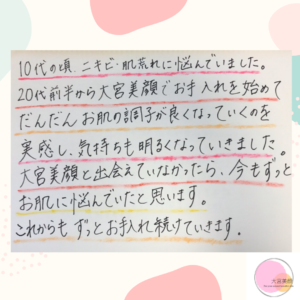 10代の頃、ニキビ・肌荒れに悩んでいました。
20代前半から大宮美顔でお手入れを始めて
だんだんお肌の調子が良くなっていくのを
実感し、気持ちも明るくなっていきました。
大宮美顔と出会えていなかったら、今もずっと
お肌に悩んでいたと思います。
これからもずっとお手入れ続けていきます。
大宮美顔